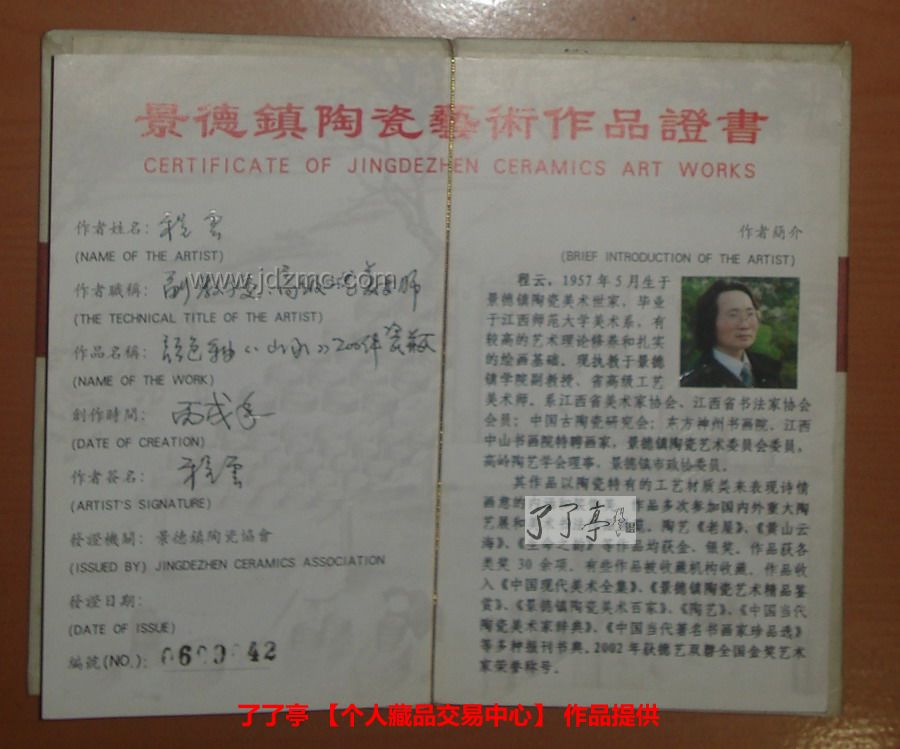 景德鎮陶瓷藝術作品證書
CERTIFICATE OF JINGDEZHEN CERAMICS ART WORKS
作者姓名：程雲
(NAME OF THE ARTIST)
www.jdzmc.com
作者職稱：副教授、高级工艺美术师
(THE TECHNICAL TITLE OF THE ARTIST)
作品名稱：颜色釉《山水》200件瓷瓶
(NAME OF THE WORK)
創作時間：丙戌年
(DATE OF CREATION)
作者簽名：程雲
(ARTIST'S SIGNATURE)
發證機關：景德鎮陶瓷協會
(ISSUED BY) JINGDEZHEN CERAMICS ASSOCIATION
發證日期：
(DATE OF ISSUE)
編號(NO.)：0600042
作者簡介
(BRIEF INTRODUCTION OF THE ARTIST)
程云，1957年5月生于
景德镇陶瓷美术世家，毕业
于江西师范大学美术系，有
较高的艺术理论修养和扎实
的绘画基础。现执教于景德
镇学院副教授、省高级工艺
美术师。系江西省美术家协会、江西省书法家协会
会员；中国古陶瓷研究会；东方神州书画院、江西
中山书画院特聘画家，景德镇陶瓷艺术委员会委员，
高岭陶艺学会理事，景德镇市政协委员。
其作品以陶瓷特有的工艺材质类来表现诗情
画意的 作品多次参加国内外重大陶
艺展和 术书法 陶艺《老屋》、《黄山云
海》、《生命之韵》等作品均获金、银奖。作品获各
类奖30余项，有些作品被收藏机构收藏。作品收
入《中国现代美术全集》、《景德镇陶瓷艺术精品鉴
赏》、《景德镇陶瓷美术百家》、《陶艺》、《中国当代
陶瓷美术家辞典》、《中国当代著名书画家珍品选》
等多种报刊书典。2002年获德艺双馨全国金奖艺术
家荣誉称号。
了了亭
了了亭 【个人藏品交易中心】 作品提供